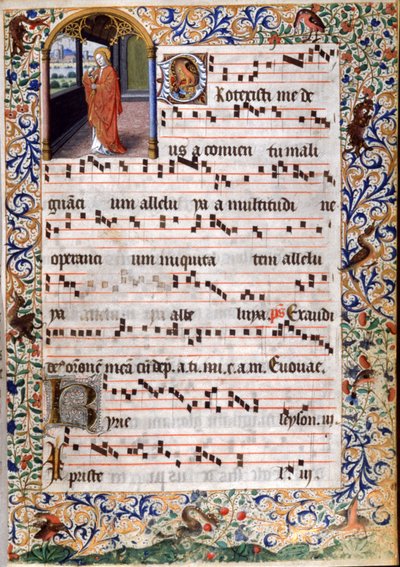 Protexisti me de
us a conuen tu mali
gnanci um allelu ya a multitudi ne
operanci um iniquita tem allelu
ya alle luya. ps Exaudi
de᷒ orōne meā cū dep̄. a. ti. mi. e. a. m. Euouae.
Kyrie leyson. iii.
xpriste iii